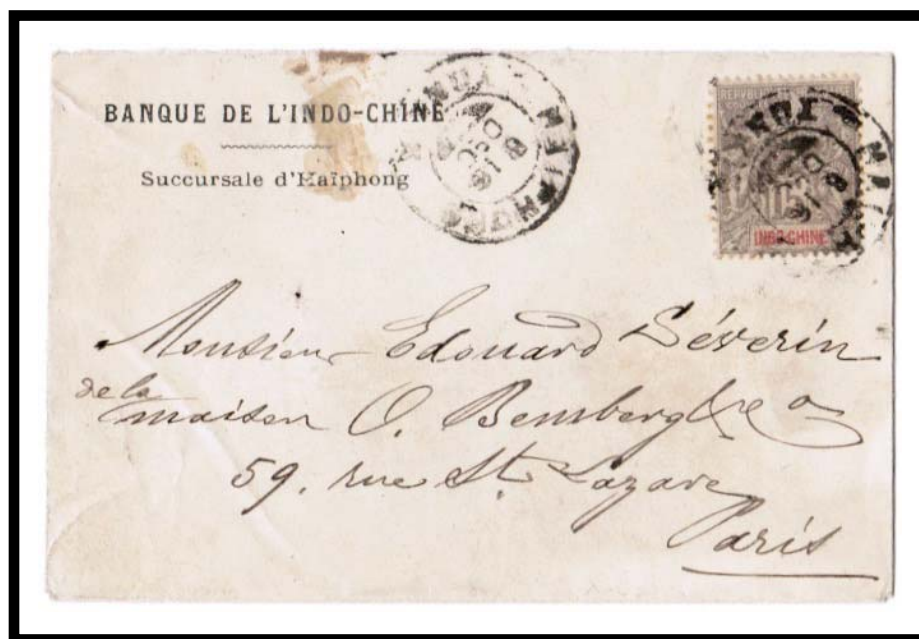 BANQUE DE L'INDO-CHINE
Succursale d'Haïphong
HAIPHONG
INDO-CHINE
Monsieur Edouard Séverin
de la
maison O. Bemberg & Co
59. rue St. Lazare
Paris